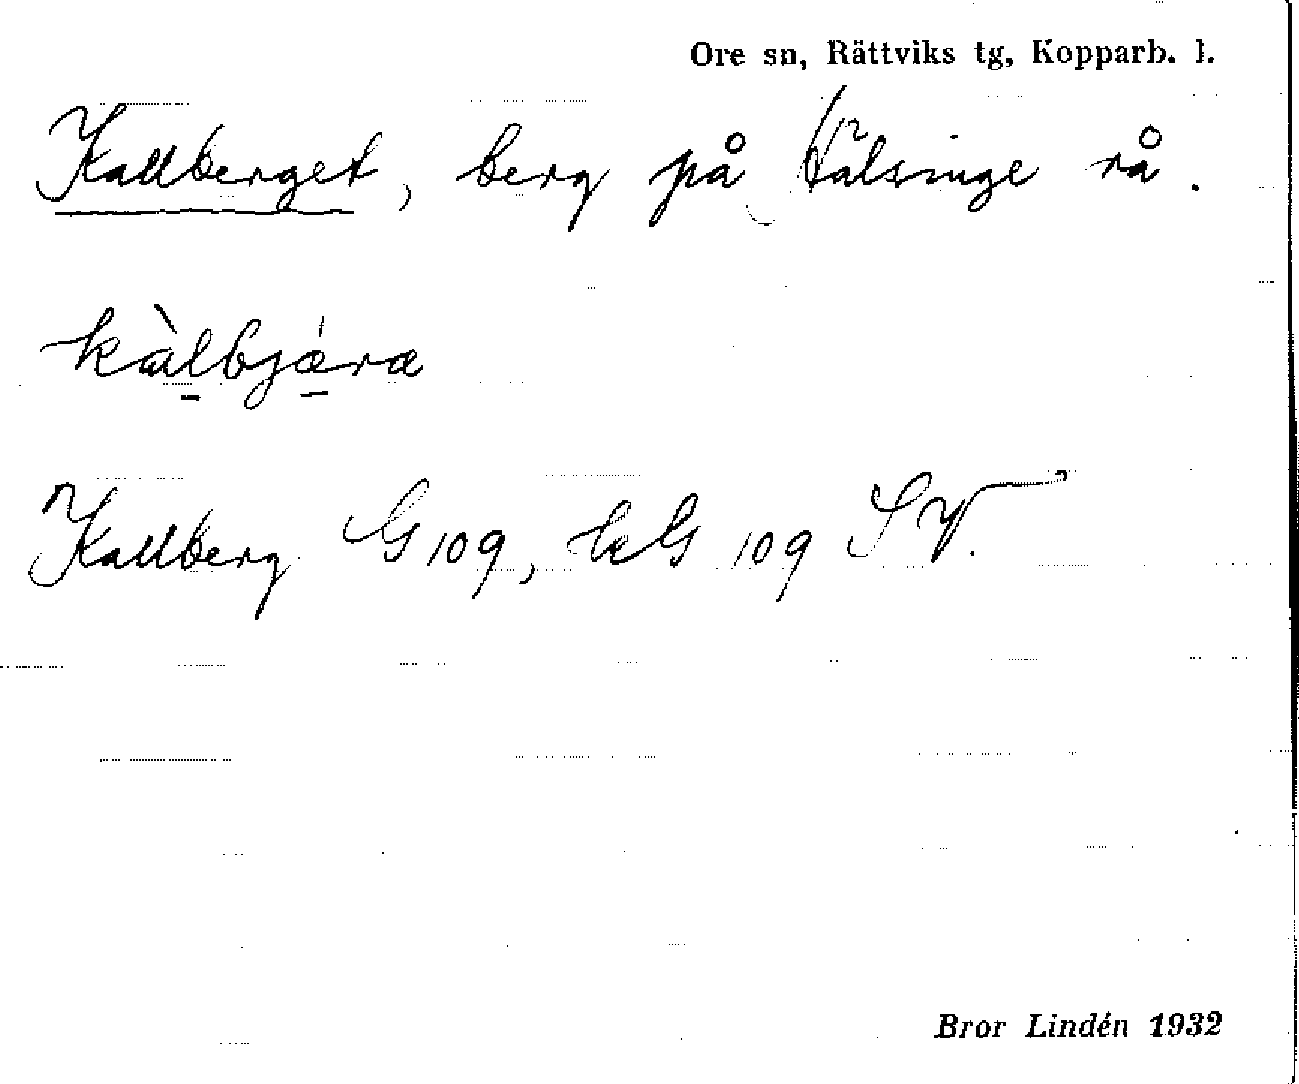 Ore sn, Rättviks tg, Kopparb. l.
Kallberget, berg på Hälsinge rå.
kàlbjæ̀ra
Kallberg G 109, hG 109 SV.
Bror Lindén 1932